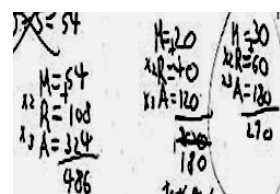 =54
M=54
x2 R=108
x3 A=324
486
M=20
x2 R=40
x3 A=120
180
M=30
x2 R=60
x3 A=180
270